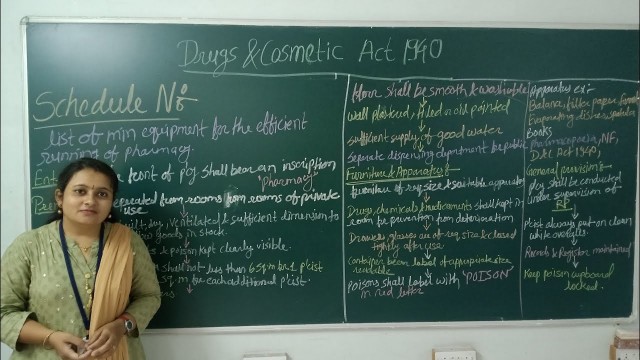 Drugs & Cosmetic Act 1940
Schedule No
list of min equipment for the efficient
running of pharmacy.
front of pcy shall bear an inscription
"Pharmacy"
separated from rooms from rooms of private
use
built, dry, ventilated & sufficient dimension to
goods in stock
& poison kept clearly visible.
shall not less than 6 sq m for 1 p'cist
sq m for each additional p'cist.
Floor shall be smooth & washable
Wall plastered, tiled or oil painted
Sufficient supply of good water
Separate dispensing department for public
Furniture & Apparatus
furniture of req size & suitable apparatus
Drugs, chemicals & medicaments shall kept in
room for prevention from deterioration
Drawers, glasses are of req. size & closed
tightly after use
Container bear label of appropriate size
Poisons shall label with "POISON"
in red letter
Apparatus ex:-
Balance, filter paper, funnel
Evaporating dishes, spatula
Books
Pharmacopoeia, NF,
D&C Act 1940,
General provision
pcy shall be conducted
under supervision of
RP
P'cist always put on clean
white overalls.
Records & Register maintained
Keep poison cupboard
locked.